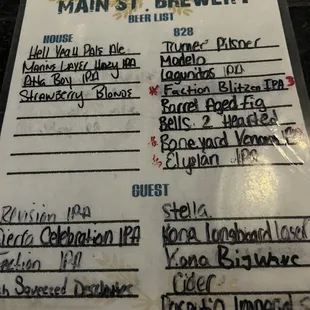 MAIN ST. BREWERY
BEER LIST
HOUSE
Hell Yeah Pale Ale
Mains Layer Hazy IPA
Atta Boy IPA
Strawberry Blonde
828
Trumer Pilsner
Modelo
Lagunitas IPA
Faction Blitzen IPA
Barrel Aged Fig
Bells 2 Hearted
Boneyard Venom
Elysian IPA
GUEST
Revision IPA
Sierra Celebration IPA
Faction IPA
Squeezed Deschutes
Stella
Kona Longboard Lager
Kona Big Wave
Cider
Rasputin Imperial